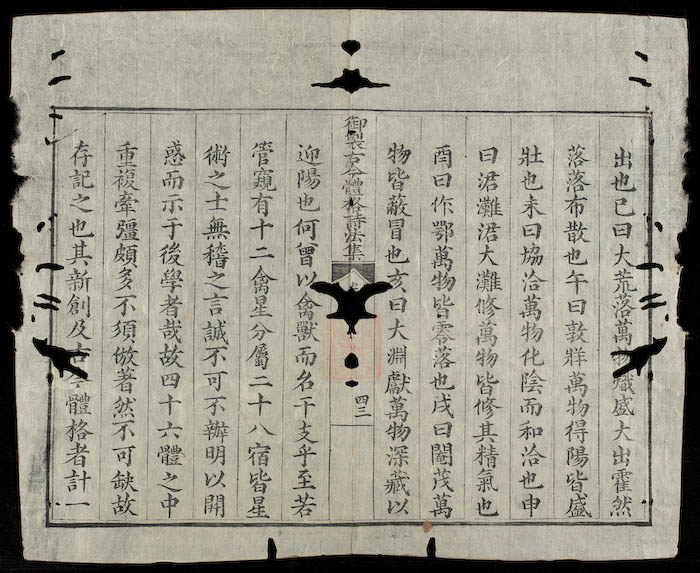 出也巳曰大荒落萬物熾盛大出霍然
落落布散也午曰敦牂萬物得陽皆盛
壯也未曰協洽萬物化陰而和洽也申
曰涒灘涒大灘修萬物皆修其精氣也
酉曰作鄂萬物皆零落也戌曰閹茂萬
物皆蔽冒也亥曰大淵獻萬物深藏以
御製古今體格詩法集
四三
迎陽也何曾以禽獸而名干支乎至若
管窺有十二禽星分屬二十八宿皆星
術之士無稽之言誠不可不辦明以開
惑而示于後學者哉故四十六體之中
重複牽彊頗多不須倣著然不可缺故
存記之也其新創及古今體格者計一